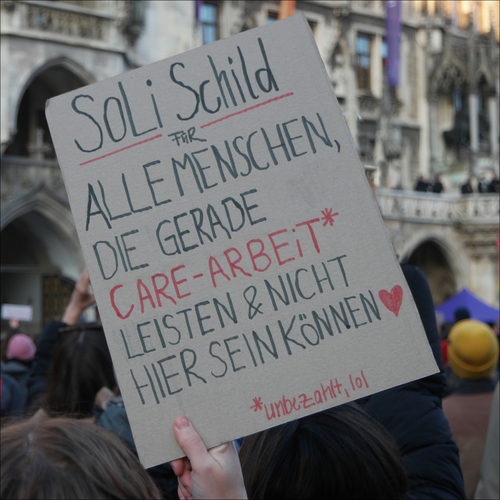 SOLi Schild
FÜR
ALLE MENSCHEN,
DIE GERADE
CARE-ARBEiT*
LEISTEN & NICHT
HIER SEIN KÖNNEN
*unbezahlt, lol